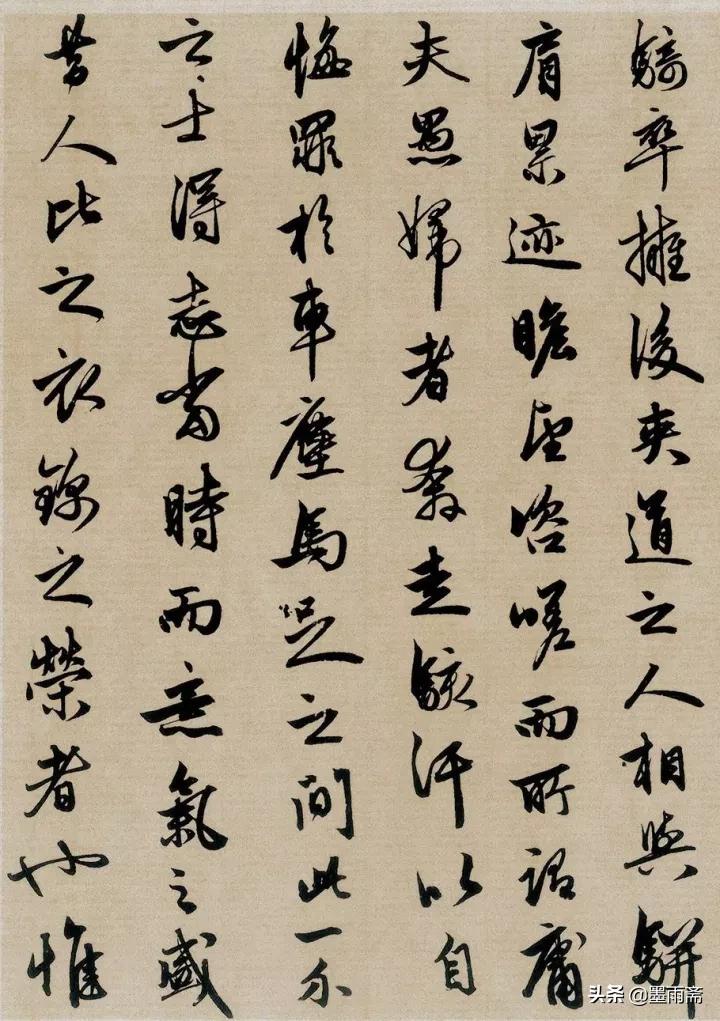 騎卒擁後夾道之人相與駢
肩累迹瞻望咨嗟而所謂庸
夫愚婦者奔走駭汗以自
悔罪於車塵馬足之間此一介
之士得志當時而意氣之盛
昔人比之衣錦之榮者也惟
头条 @墨雨斋